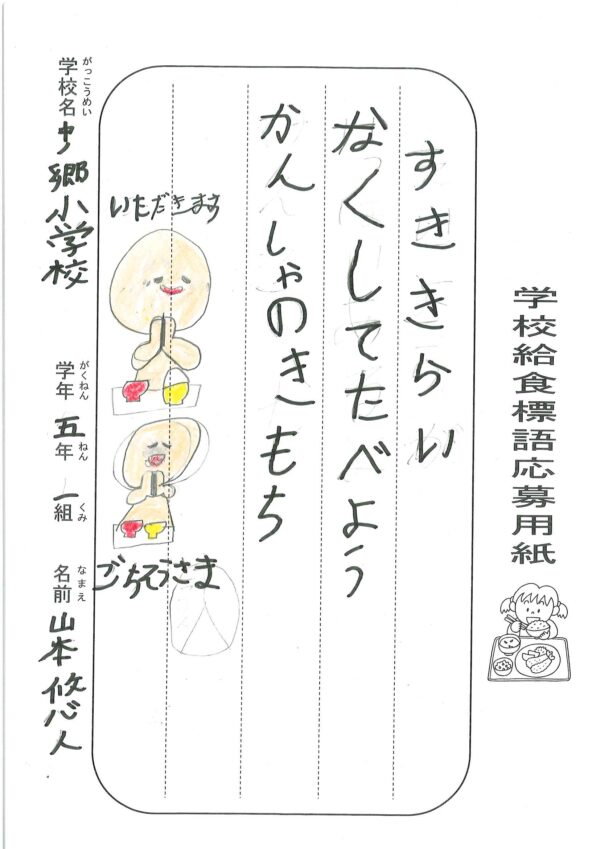 学校給食標語応募用紙
すききらい
なくしてたべよう
かんしゃのきもち
いただきます
ごちそうさま
がっこうめい
学校名 中郷小学校
がくねん ねん くみ
学年 五年 一組
なまえ
名前 山本悠人